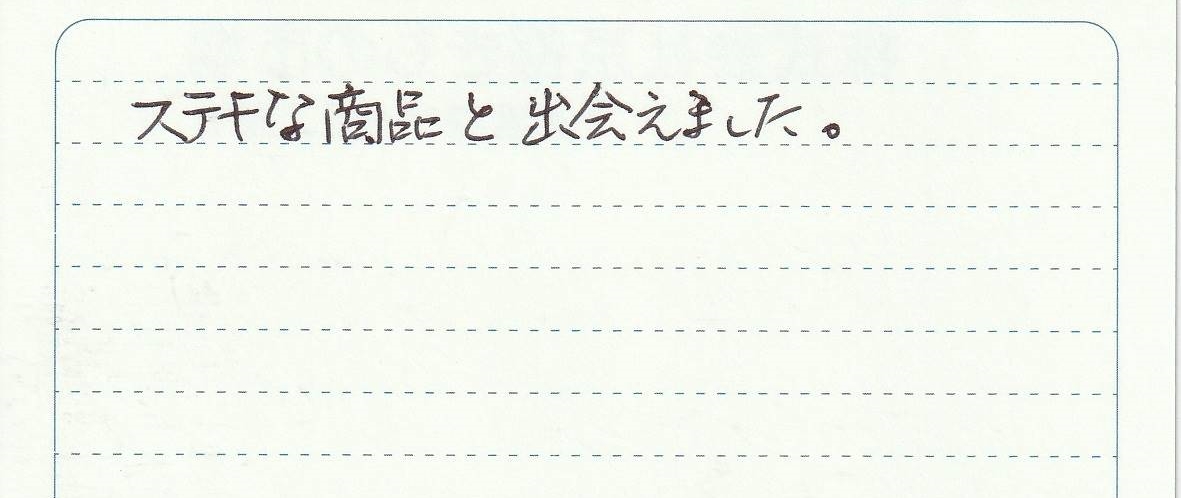 ステキな商品と出会えました。